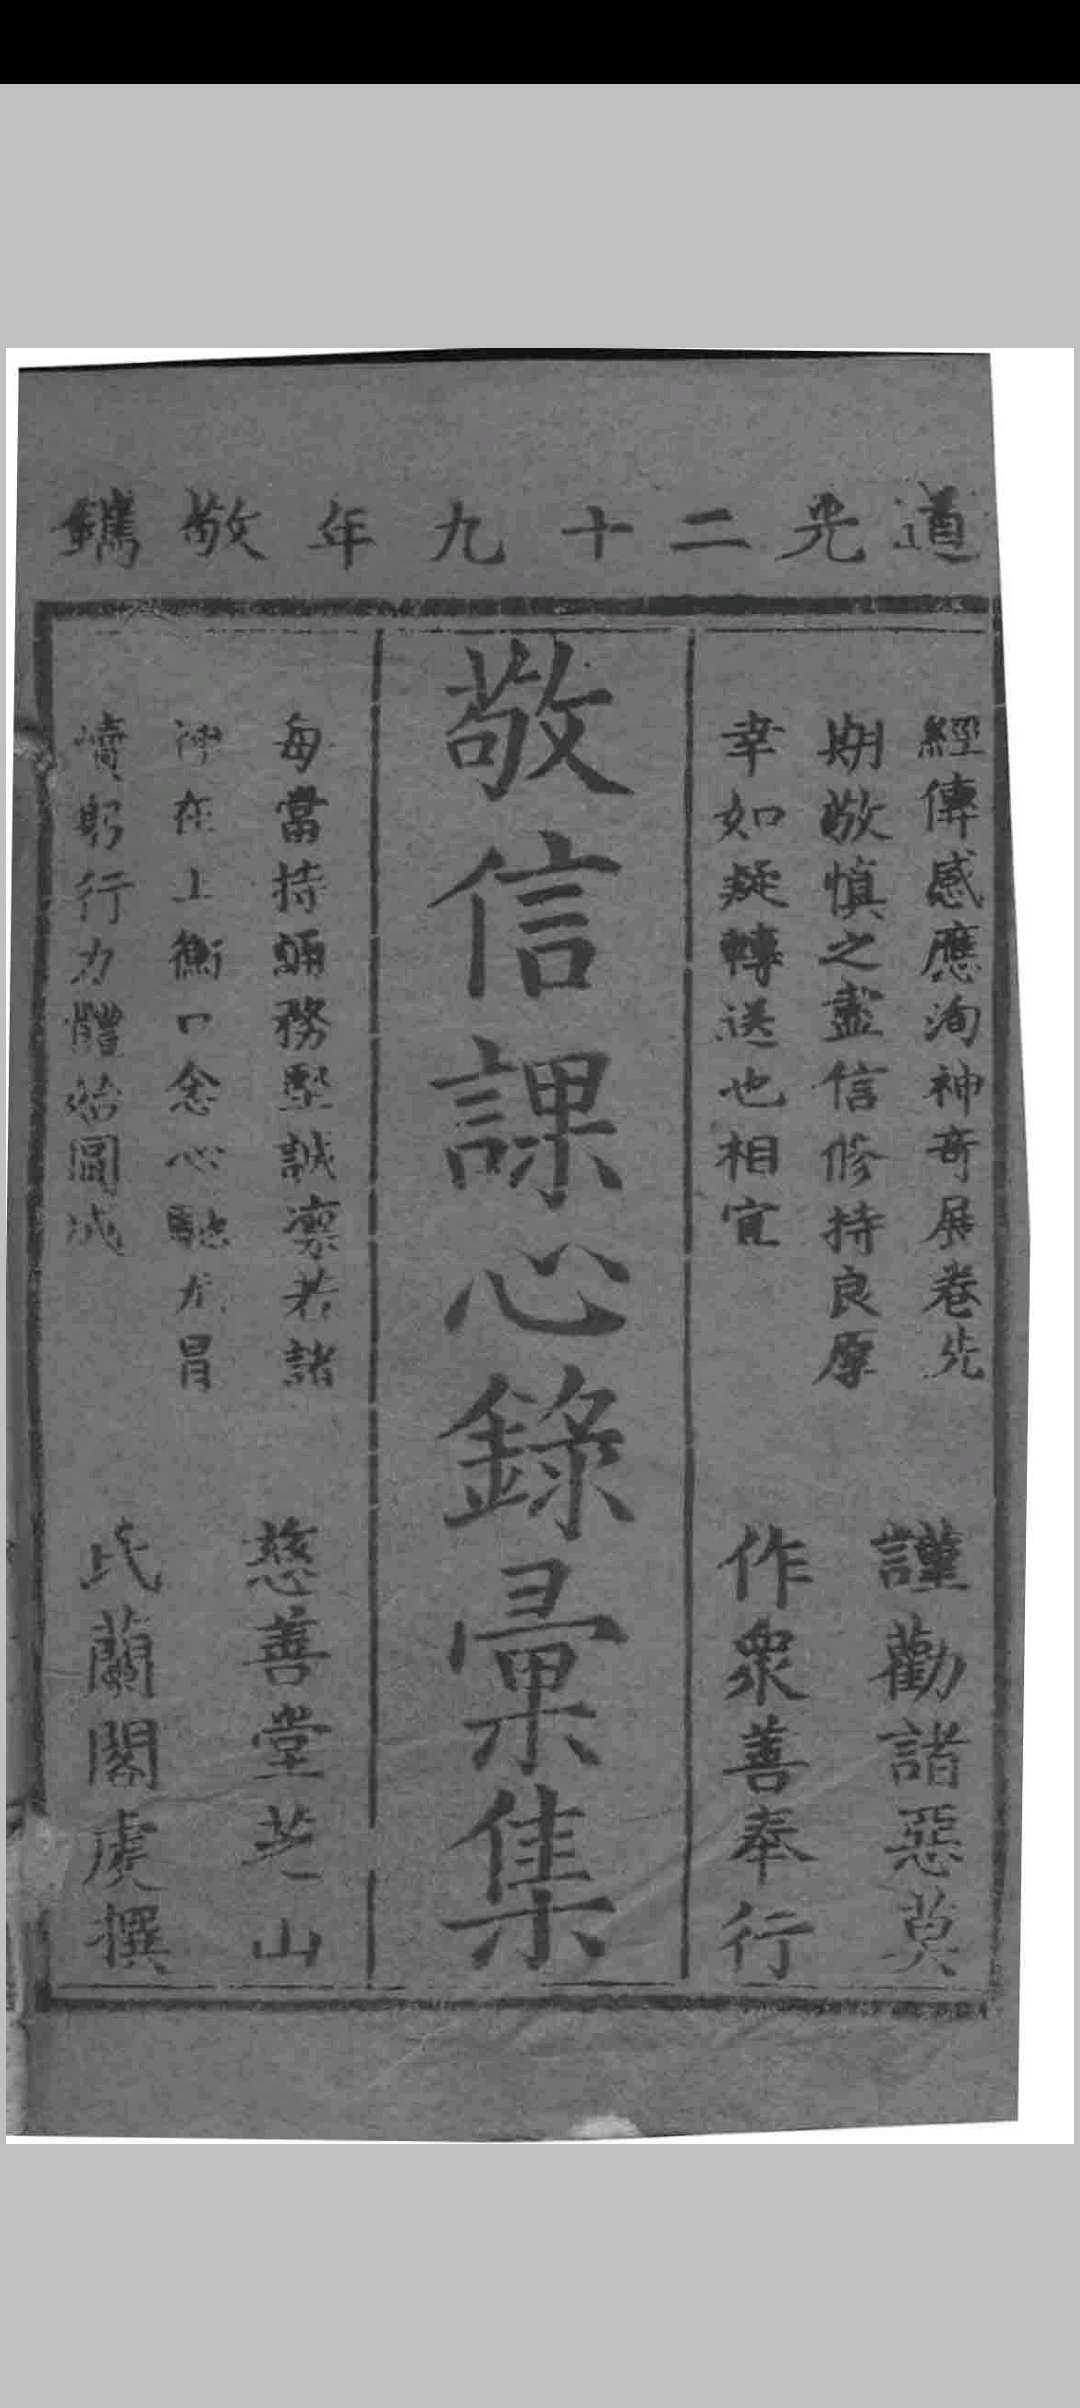 道光二十九年敬鐫
經傳感應洵神奇展卷先
期敬慎之盡信修持良厚
幸如疑轉送也相宜
謹勸諸惡莫
作衆善奉行
敬信課心錄彙集
每當持誦務堅誠凜若諸
神在上衡口念心馳尤冒
瀆躬行力體始圓成
慈善堂芝山
氏蘭閣虔撰